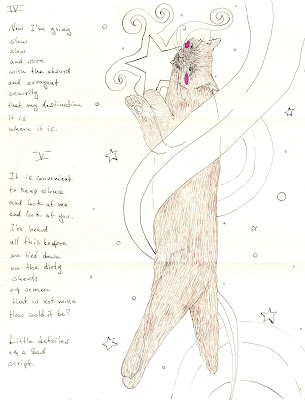 IV
Now I'm going
slow
slow
and sure
with the absurd
and arrogant
security
that my destination
it is
where it is.
V
It is convenient
to keep silence
and look at me
and look at you.
I've heard
all this before
we lied down
on the dirty
sheets
of semen
that is not mine
How could it be?
Little details
of a bad
script.